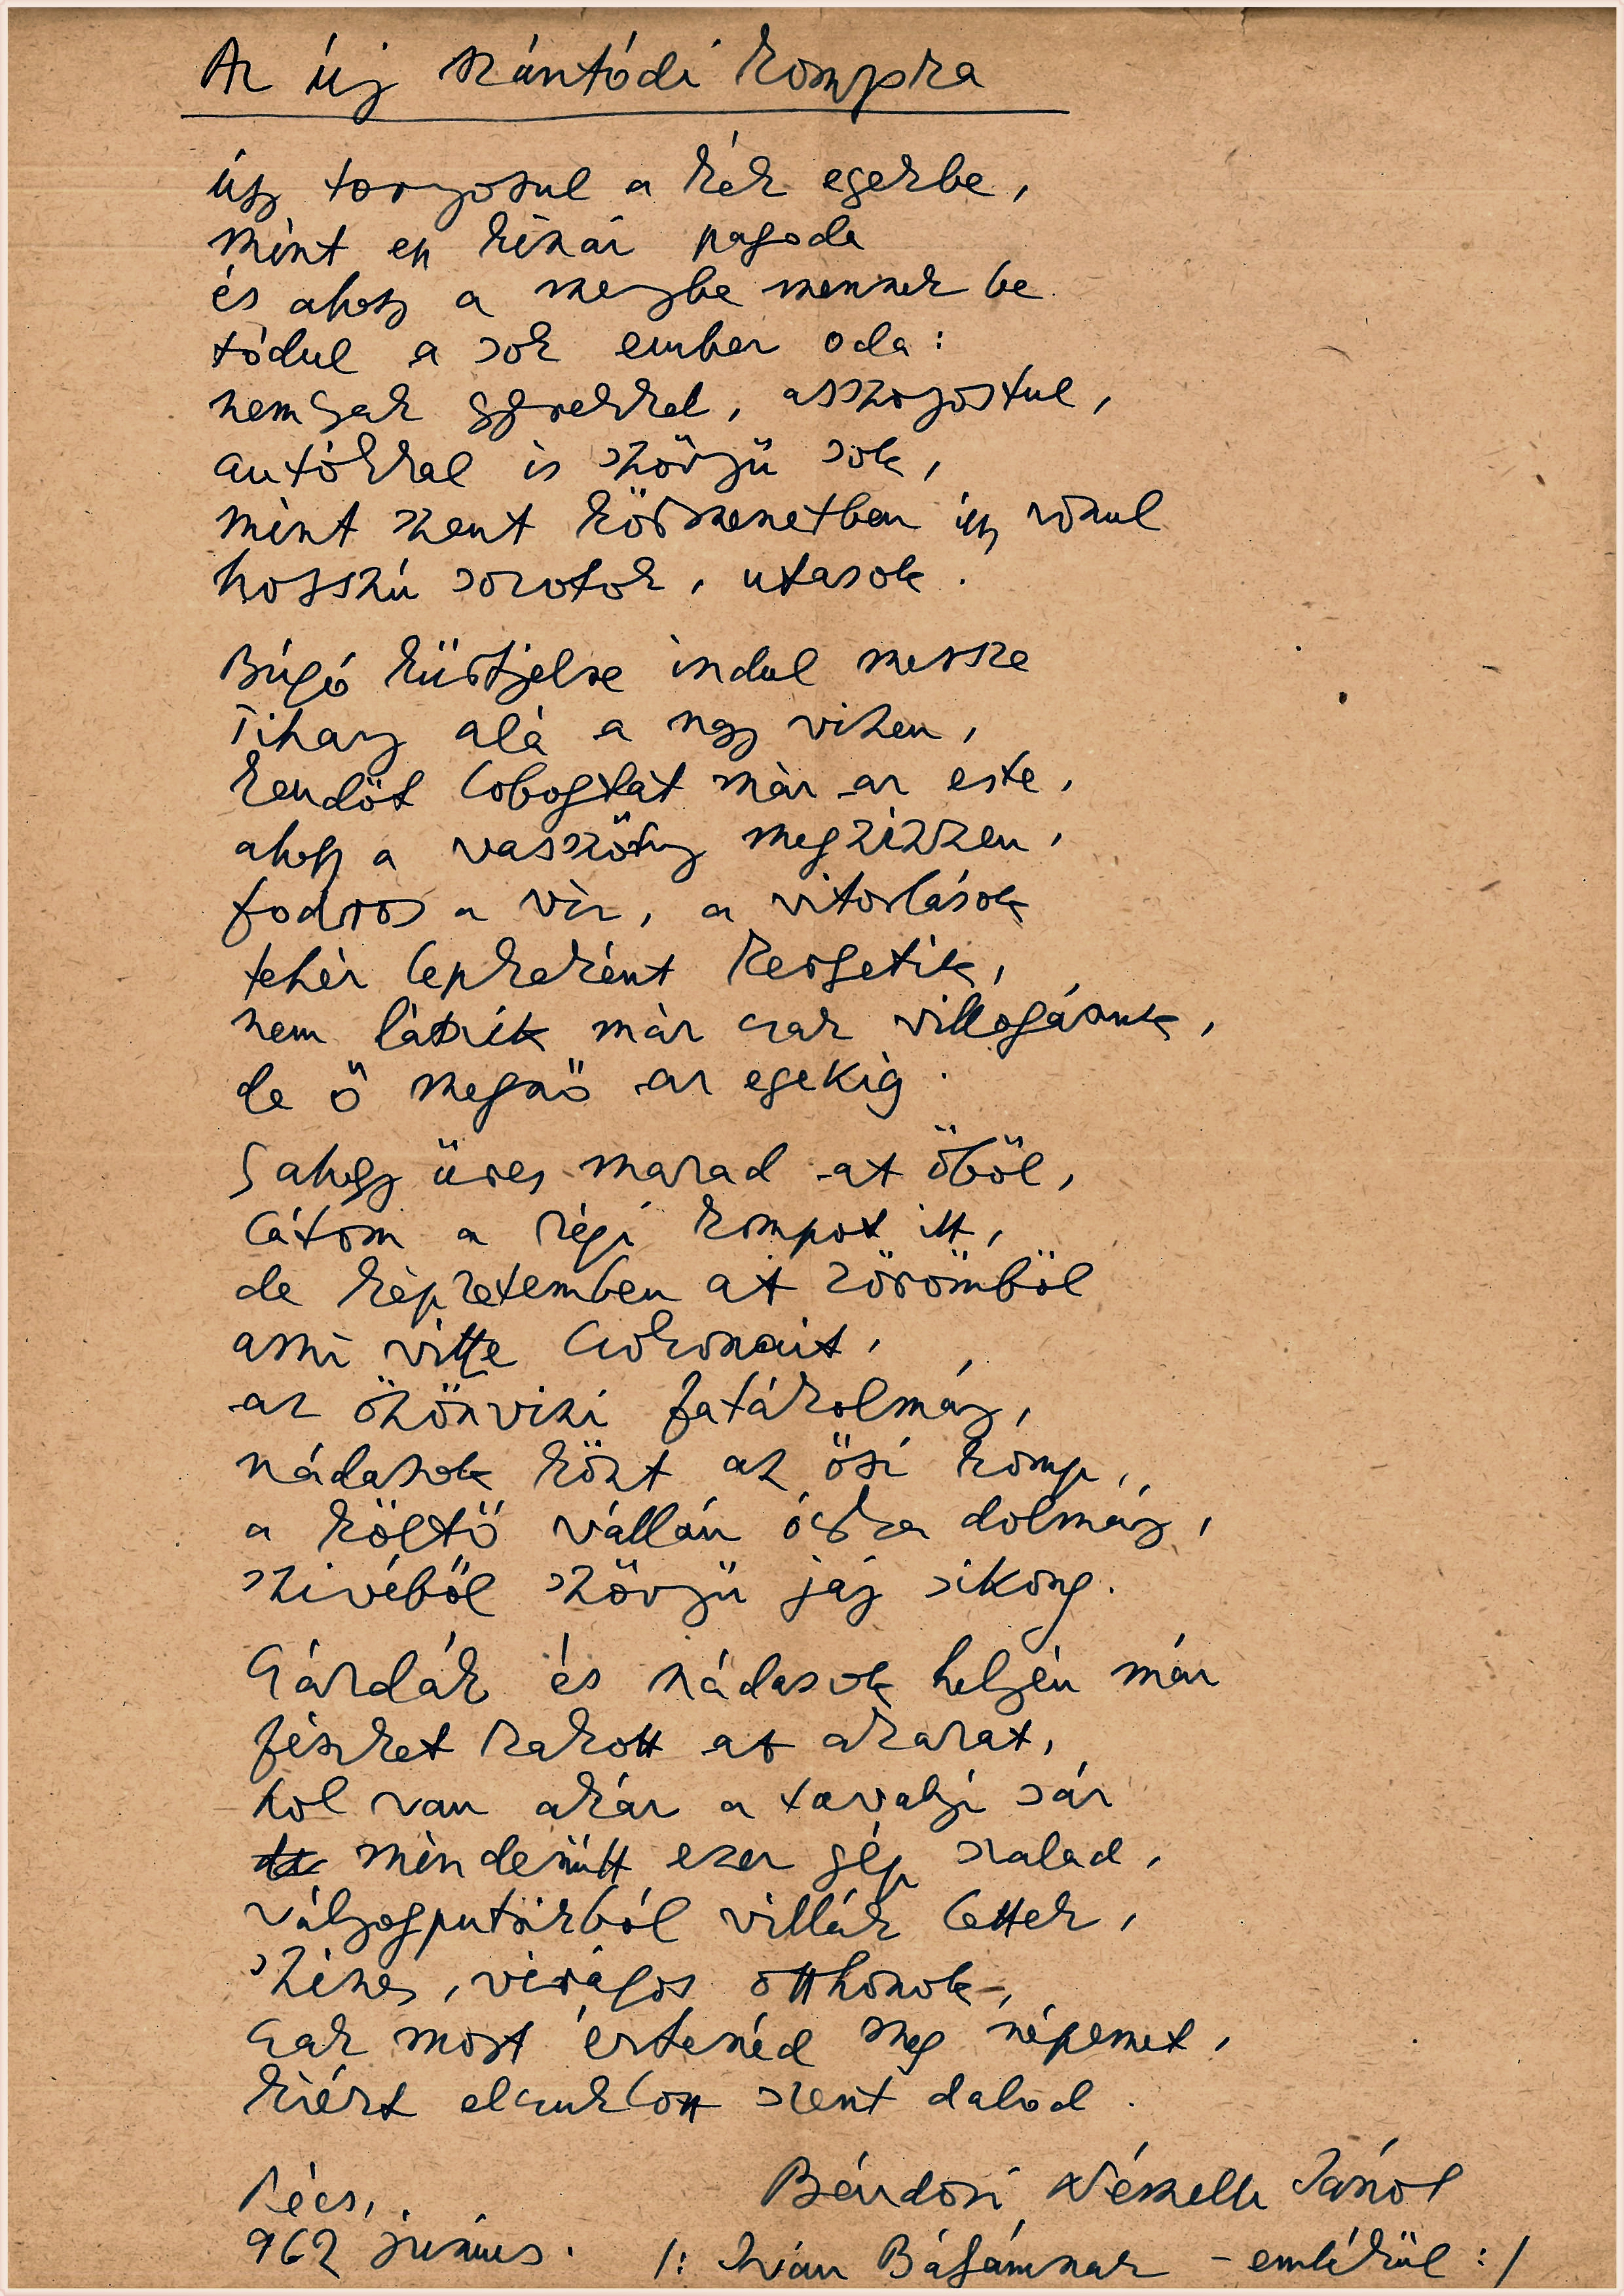 Az új szántódi kompra
úgy tornyosul a kék egekbe,
mint egy kínai pagoda
és ahogy a mennybe mennek be
tódul a sok ember oda:
nemcsak gyerekkel, asszonyostul,
autókkal is szörnyü sok,
mint szent körmenetben úgy vonul
hosszú sorotok, utasok.
Búgó kürtjelre indul messze
Tihany alá a nagy vizen,
kendőt lobogtat már az este,
ahogy a vasszörny megzizzen,
fodros a víz, a vitorlások
fehér lepkeként kergetik,
nem látszik már csak villogásuk,
de ő megnő az egekig.
S ahogy üres marad az öböl,
látom a régi kompot itt,
de képzetemben az özönből
ami vitte Csokonait,
az özönvizi fatákolmány,
nádasok közt az ősi komp,
a költő vállán ócska dolmány,
szivéből szörnyü jaj sikong.
Csárdák és nádasok helyén már
fészket rakott az akarat,
hol van akár a tavalyi sár
mindenütt ezer gép szalad,
vályogputrikból villák lettek,
szines, virágos otthonok,
Csak most értenéd meg népemet,
kiért elcsuklott szent dalod.
Pécs,
962 június.
Bárdosi Németh János
/: Iván Bátyámnak - emlékül :/